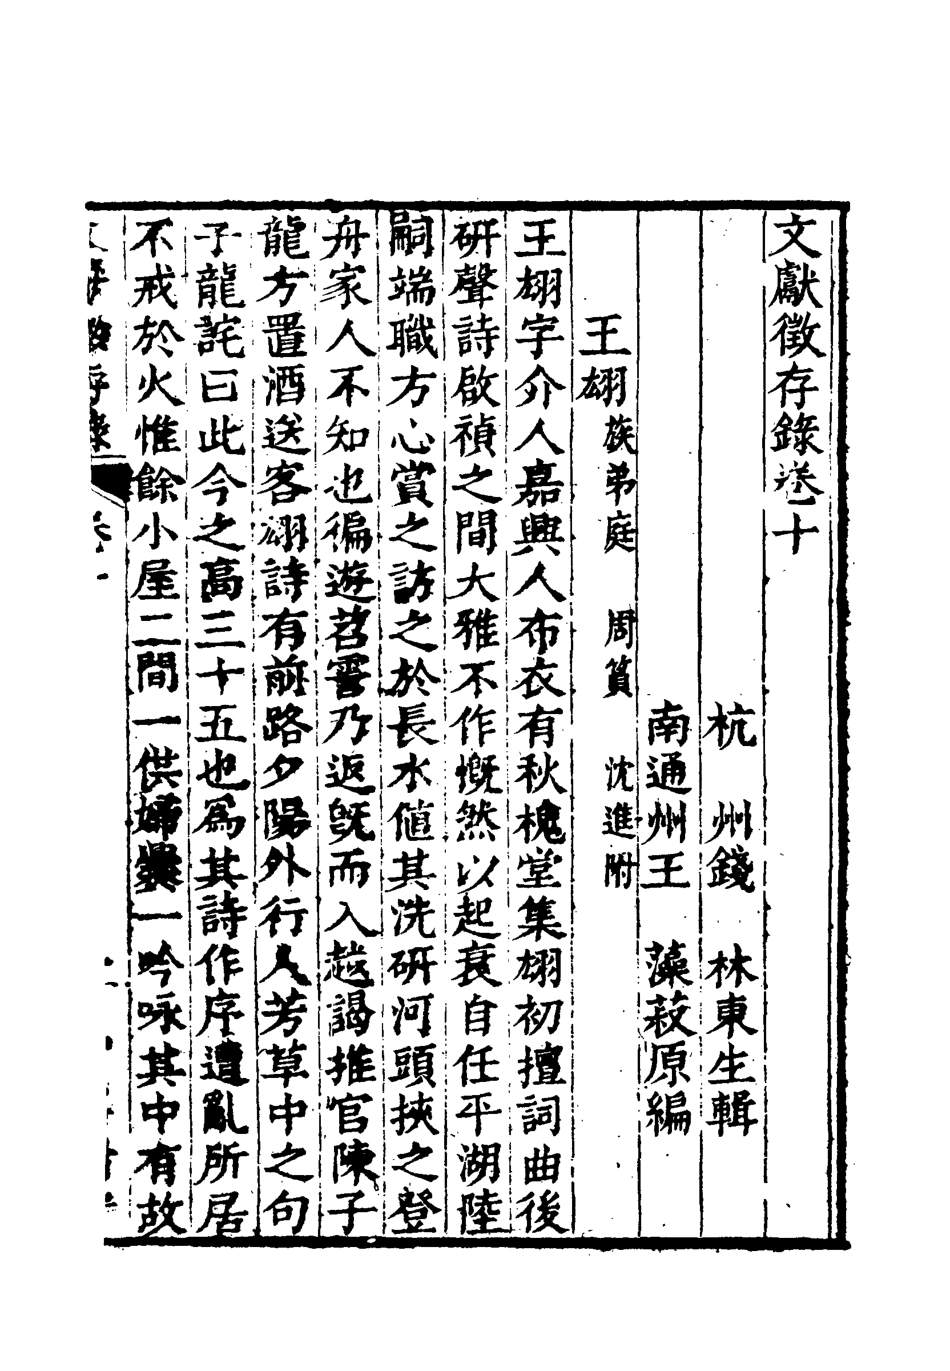 文獻徵存錄卷十
杭　州錢　林東生輯
南通州王　藻菽原編
王翃族弟庭　周篔　沈進附
王翃字介人嘉興人布衣有秋槐堂集翃初擅詞曲後
研聲詩啟禎之間大雅不作慨然以起衰自任平湖陸
嗣端職方心賞之訪之於長水値其洗研河頭挾之登
舟家人不知也徧遊苕霅乃返旣而入越謁推官陳子
龍方置酒送客翃詩有前路夕陽外行人芳草中之句
子龍詫曰此今之高三十五也爲其詩作序遭亂所居
不戒於火惟餘小屋二間一供婦爨一吟咏其中有故